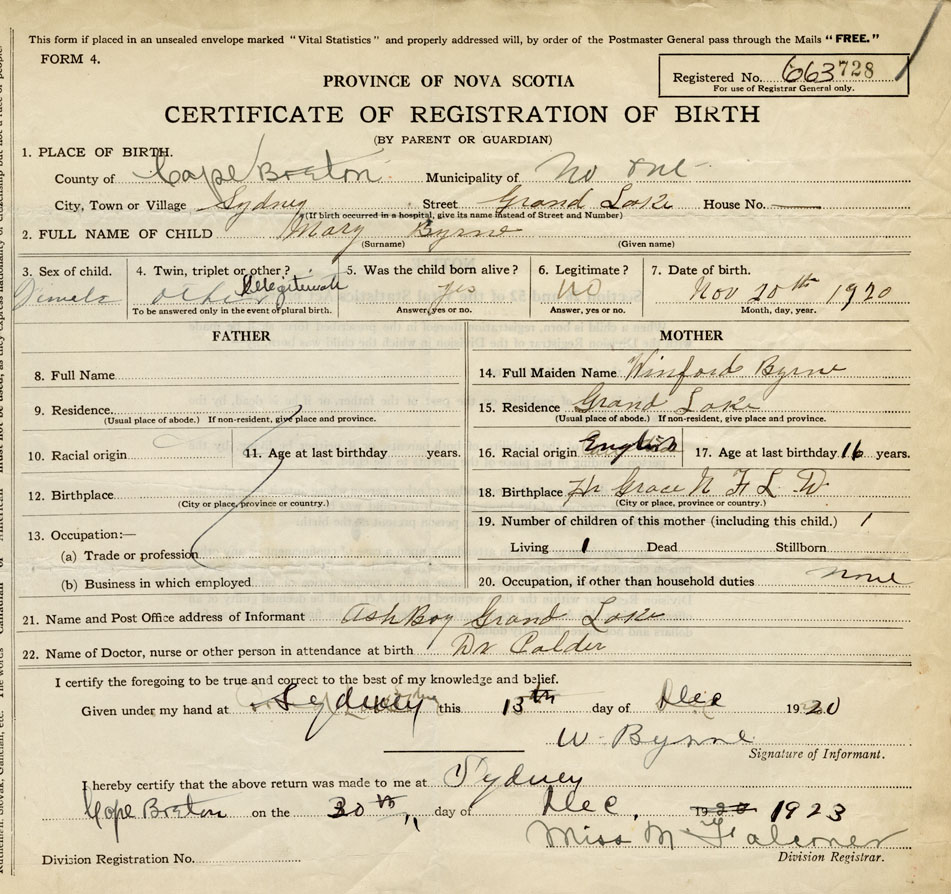 This form if placed in an unsealed envelope marked "Vital Statistics" and properly addressed will, by order of the Postmaster General pass through the Mails "FREE."
FORM 4.
Registered No. 663728
For use of Registrar General only.
PROVINCE OF NOVA SCOTIA
CERTIFICATE OF REGISTRATION OF BIRTH
(BY PARENT OR GUARDIAN)
1. PLACE OF BIRTH.
County of Cape Breton Municipality of No one
City, Town or Village Sydney Street Grand Lake House No.
(If birth occurred in a hospital, give its name instead of Street and Number)
2. FULL NAME OF CHILD Mary Byrne
(Surname) (Given name)
3. Sex of child. 4. Twin, triplet or other? 5. Was the child born alive? 6. Legitimate? 7. Date of birth.
Female other Illegitimate yes No Nov 20th 1920
To be answered only in the event of plural birth. Answer, yes or no. Answer, yes or no. Month, day, year.
FATHER
8. Full Name
9. Residence.
(Usual place of abode.) If non-resident, give place and province.
10. Racial origin 11. Age at last birthday years.
12. Birthplace
(City or place, province or country.)
13. Occupation:—
(a) Trade or profession
(b) Business in which employed
MOTHER
14. Full Maiden Name Winford Byrne
15. Residence Grand Lake
(Usual place of abode.) If non-resident, give place and province.
16. Racial origin English 17. Age at last birthday 16 years.
18. Birthplace Hr Grace N F L D
(City or place, province or country.)
19. Number of children of this mother (including this child.) 1
Living 1 Dead Stillborn
20. Occupation, if other than household duties none
21. Name and Post Office address of Informant Ash Boy Grand Lake
22. Name of Doctor, nurse or other person in attendance at birth Dr Calder
I certify the foregoing to be true and correct to the best of my knowledge and belief.
Given under my hand at Sydney this 13th day of Dec 1920
W Byrne
Signature of Informant.
I hereby certify that the above return was made to me at Sydney
Cape Breton on the 30th day of Dec, 1923
Miss M Falconer
Division Registration No. Division Registrar.